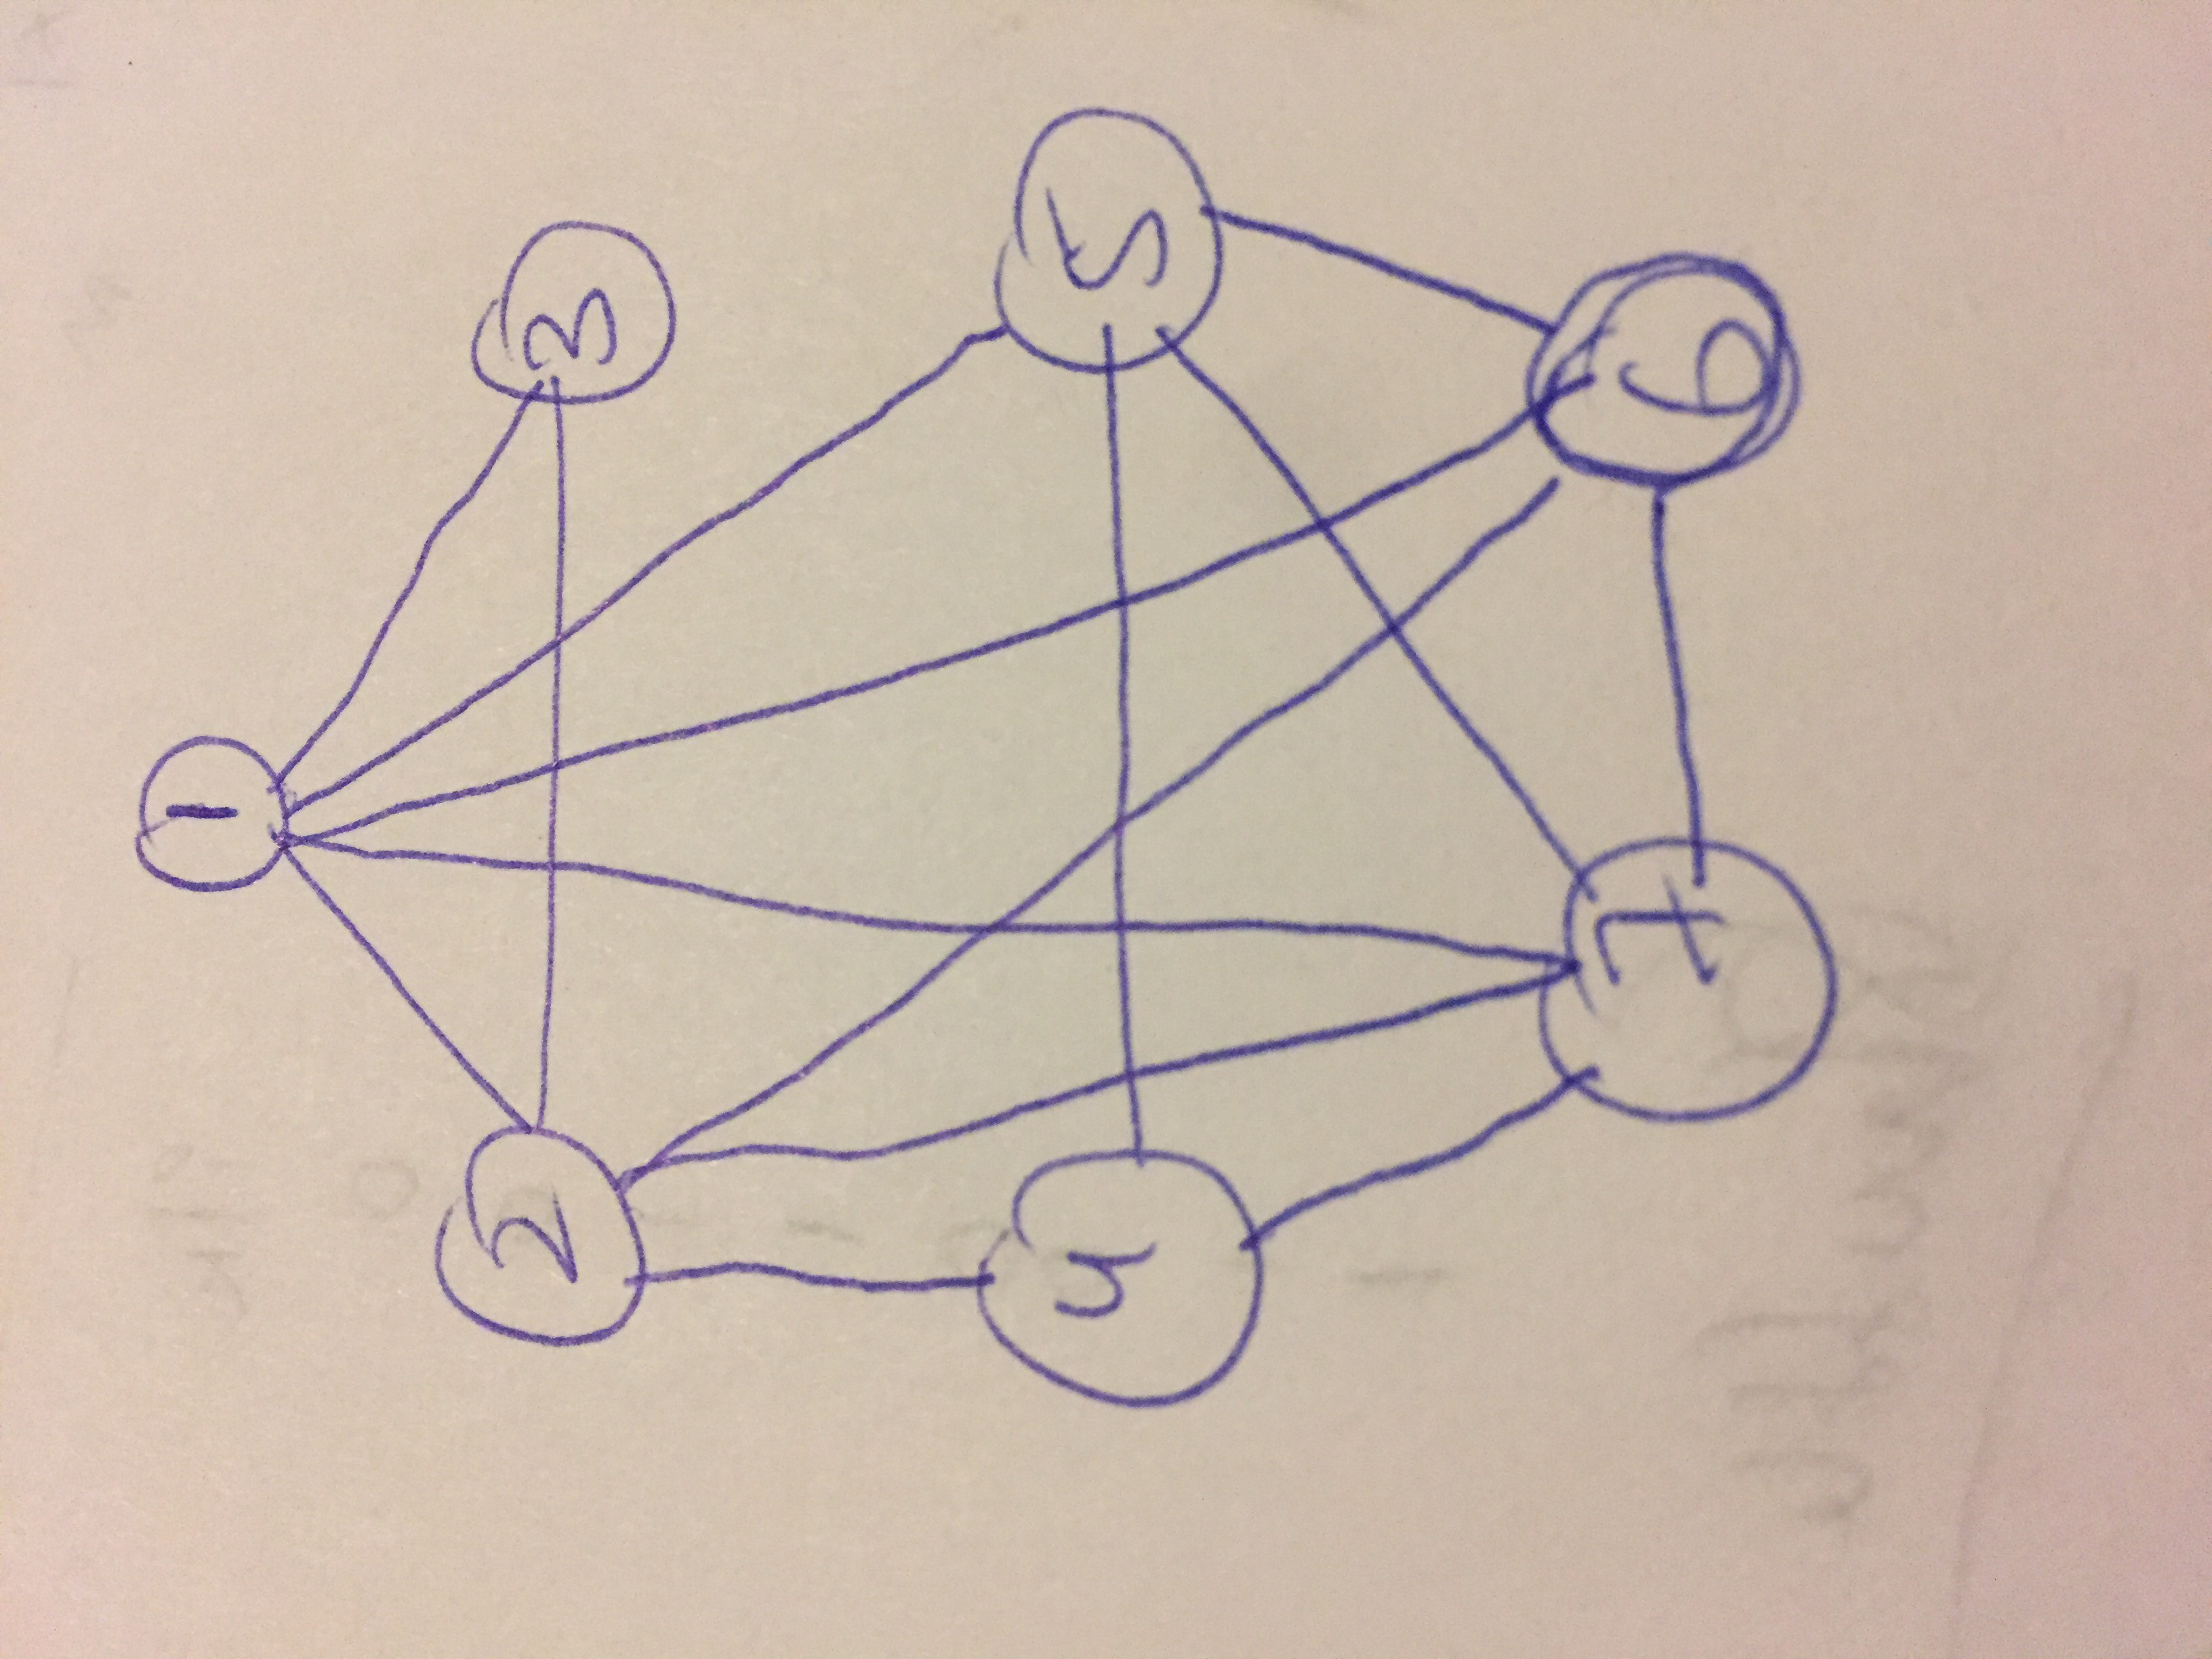 1
2 3
4 5
7 6